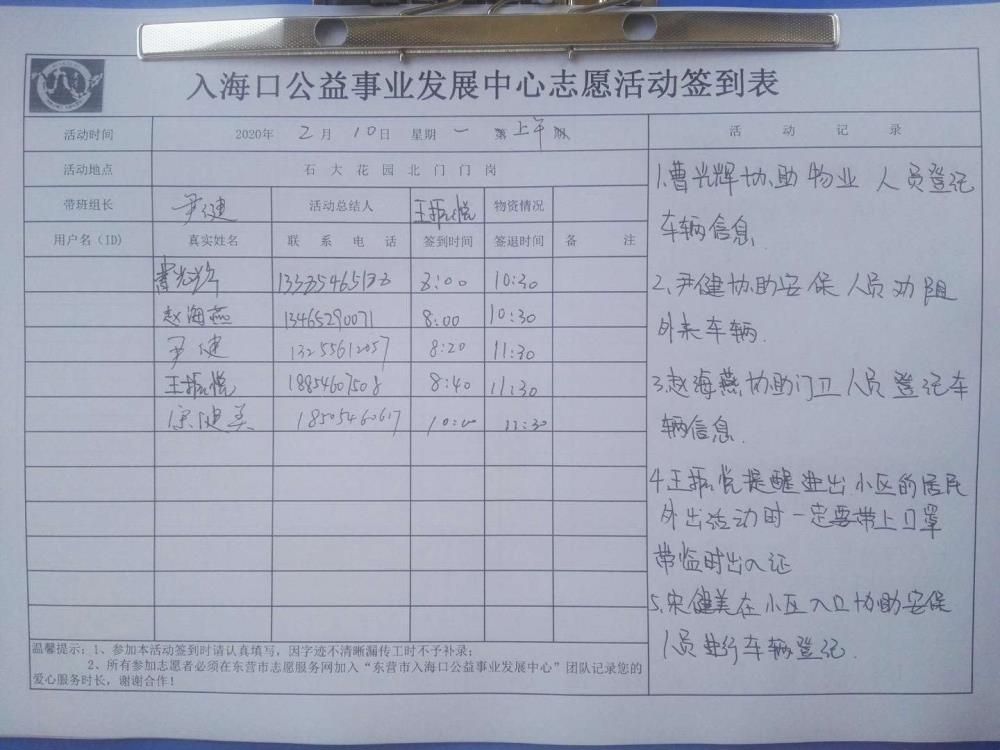 入海口公益事业发展中心志愿活动签到表
活动时间 2020年 2月 10日 星期一 第 上午 班
活动地点 石大花园北门门岗
带班组长 尹健 活动总结人 王振悦 物资情况
用户名(ID) 真实姓名 联系电话 签到时间 签退时间 备注
曹光辉 8:00 10:30
赵海燕 13465290071 8:00 10:30
尹健 13255612057 8:20 11:30
王振悦 18854607508 8:40 11:30
宋健美 18505460617 10:00 11:30
温馨提示:1、参加本活动签到时请认真填写,因字迹不清晰漏传工时不予补录;
2、所有参加志愿者必须在东营市志愿服务网加入“东营市入海口公益事业发展中心”团队记录您的
爱心服务时长,谢谢合作!
活动记录
1.曹光辉协助物业人员登记
车辆信息.
2.尹健协助安保人员劝阻
外来车辆.
3.赵海燕协助门卫人员登记车
辆信息.
4.王振悦提醒进出小区的居民
外出活动时一定要带上口罩
带临时出入证
5.宋健美在小区入口协助安保
人员进行车辆登记.